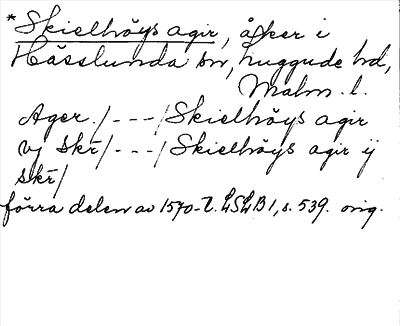 * Skielhöys agir, åker i
Hässlunda sn, Luggude hd,
Malm. l.
Ager. /---/ Skielhöys agir
vj skr /---/ Skielhöys agir ij
skr /
förra delen av 1570-t. LSLB 1, s. 539. orig.